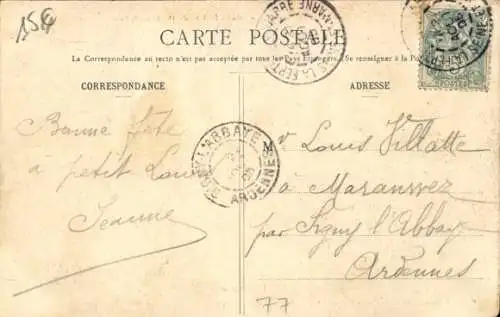 15€
CARTE POSTALE
La Correspondance au recto n'est pas acceptée par tous les Pays Etrangers. (Se renseigner à la Poste)
CORRESPONDANCE
ADRESSE
Bonne fête
à petit Louis
Jeanne
SIGNY L'ABBAYE
ARDENNES
Louis Villatte
à Maranwez
par Signy l'Abbaye
Ardennes
77